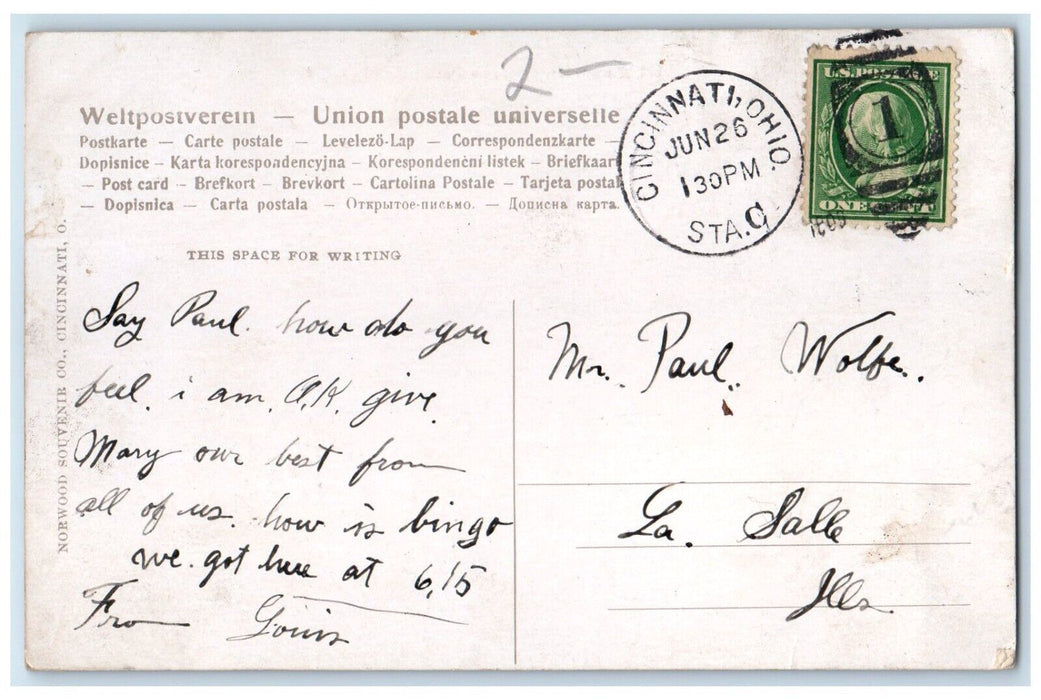 2 —
Weltpostverein — Union postale universelle
Postkarte — Carte postale — Levelező-Lap — Correspondenzkarte —
Dopisnice — Karta korespondencyjna — Korespondenční listek — Briefkaart
— Post card — Brefkort — Brevkort — Cartolina Postale — Tarjeta postal
— Dopisnica — Carta postala — Открытое-письмо. — Дописна карта.
THIS SPACE FOR WRITING
CINCINNATI, OHIO.
JUN 26
130PM
STA. C
U.S. POSTAGE
1
ONE CENT
NORWOOD SOUVENIR CO., CINCINNATI, O.
Say Paul. how do you
feel. i am. O.K. give
Mary our best from
all of us. how is bingo
we. got here at 6,15
From Louis
Mr. Paul. Wolfe.
La. Salle
Ills.